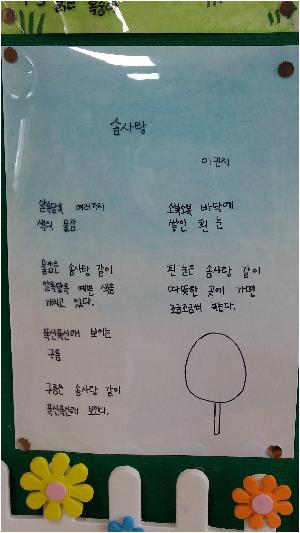 솜사탕
이권지
알록달록 여러가지
색의 물감
물감은 솜사탕 같이
알록달록 예쁜 색을
가지고 있다.
푹신푹신해 보이는
구름
구름은 솜사탕 같이
푹신푹신해 보인다.
소복소복 바닥에
쌓인 흰 눈
흰 눈은 솜사탕 같이
따뜻한 곳에 가면
조금조금씩 녹는다.